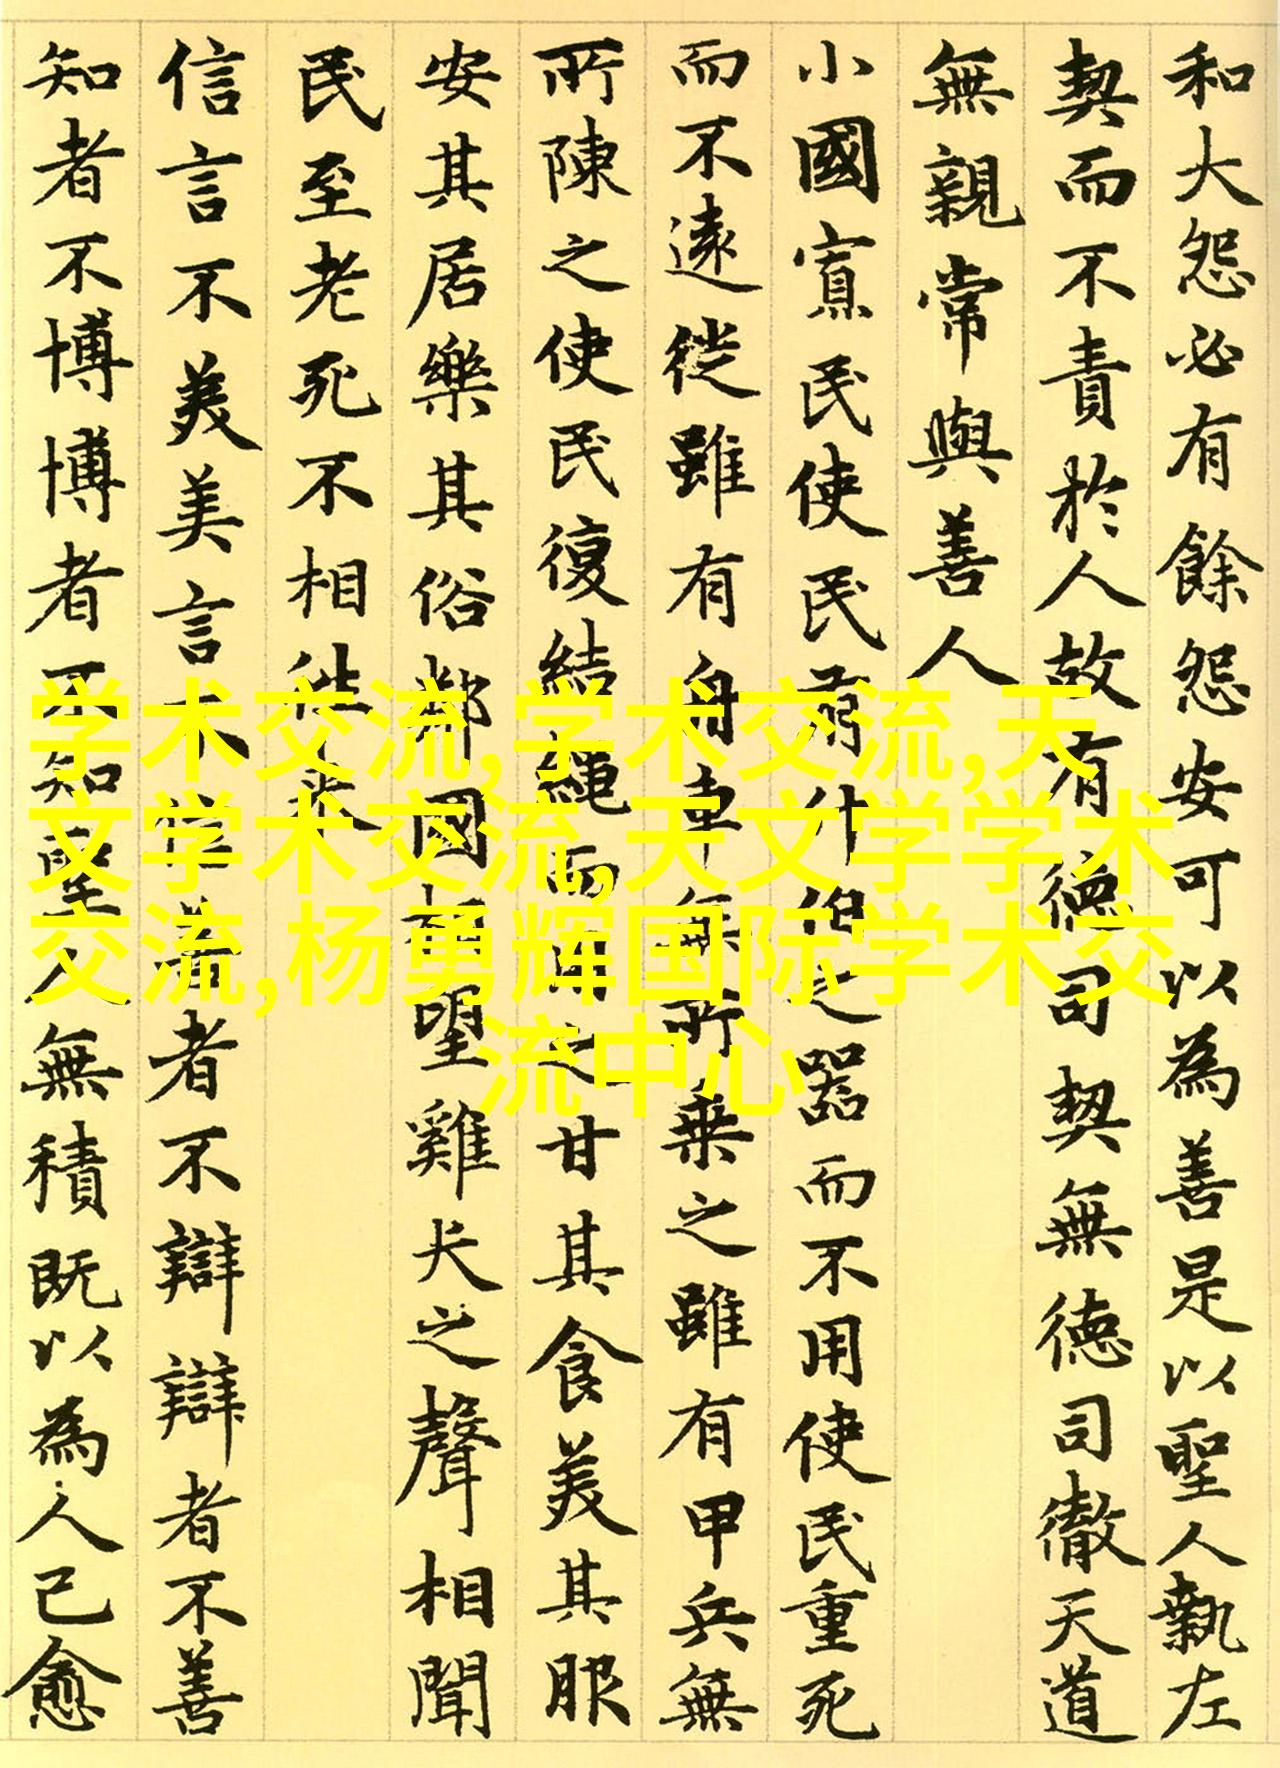 和大怨必有餘怨安可以為善是以聖人執左
契而不責於人故有德司契無德司徹天道
無親常與善人
小國寡民使民有什伯之器而不用使民重死
而不遠徙雖有舟車無所乗之雖有甲兵無
所陳之使民復結繩而用之甘其食美其服
安其居樂其俗鄰國相望雞犬之聲相聞
民至老死不相往来
信言不美美言不信善者不辯辯者不善
知者不博博者不知聖人無積既以為人己愈
学术交流,学术交流,天
文学术交流,天文学学术
交流,杨勇辉国际学术交
流中心